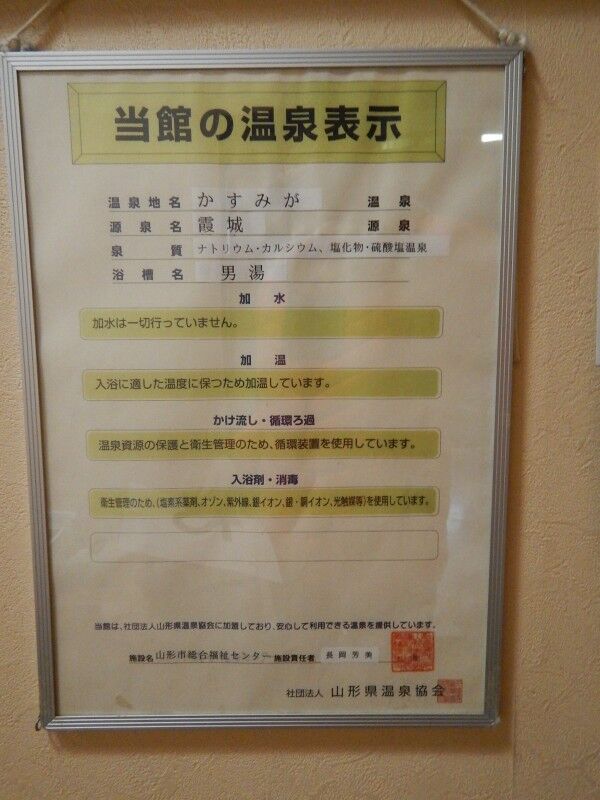 当館の温泉表示
温泉地名 かすみが 温泉
源泉名 霞城 源泉
泉質 ナトリウム・カルシウム、塩化物・硫酸塩温泉
浴槽名 男湯
加水
加水は一切行っていません。
加温
入浴に適した温度に保つため加温しています。
かけ流し・循環ろ過
温泉資源の保護と衛生管理のため、循環装置を使用しています。
入浴剤・消毒
衛生管理のため、(塩素系薬剤、オゾン、紫外線、銀イオン、銀・銅イオン、光触媒等)を使用しています。
当館は、社団法人山形県温泉協会に加盟しており、安心して利用できる温泉を提供しています。
施設名 山形市総合福祉センター 施設責任者 長岡芳美
社団法人 山形県温泉協会